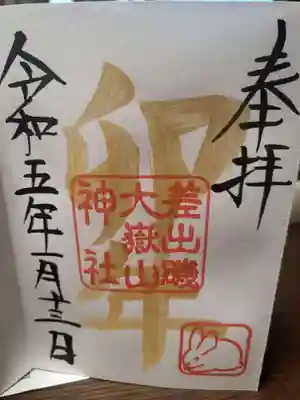 奉拝
卯年
差出磯
大嶽山
神社
令和五年一月十三日